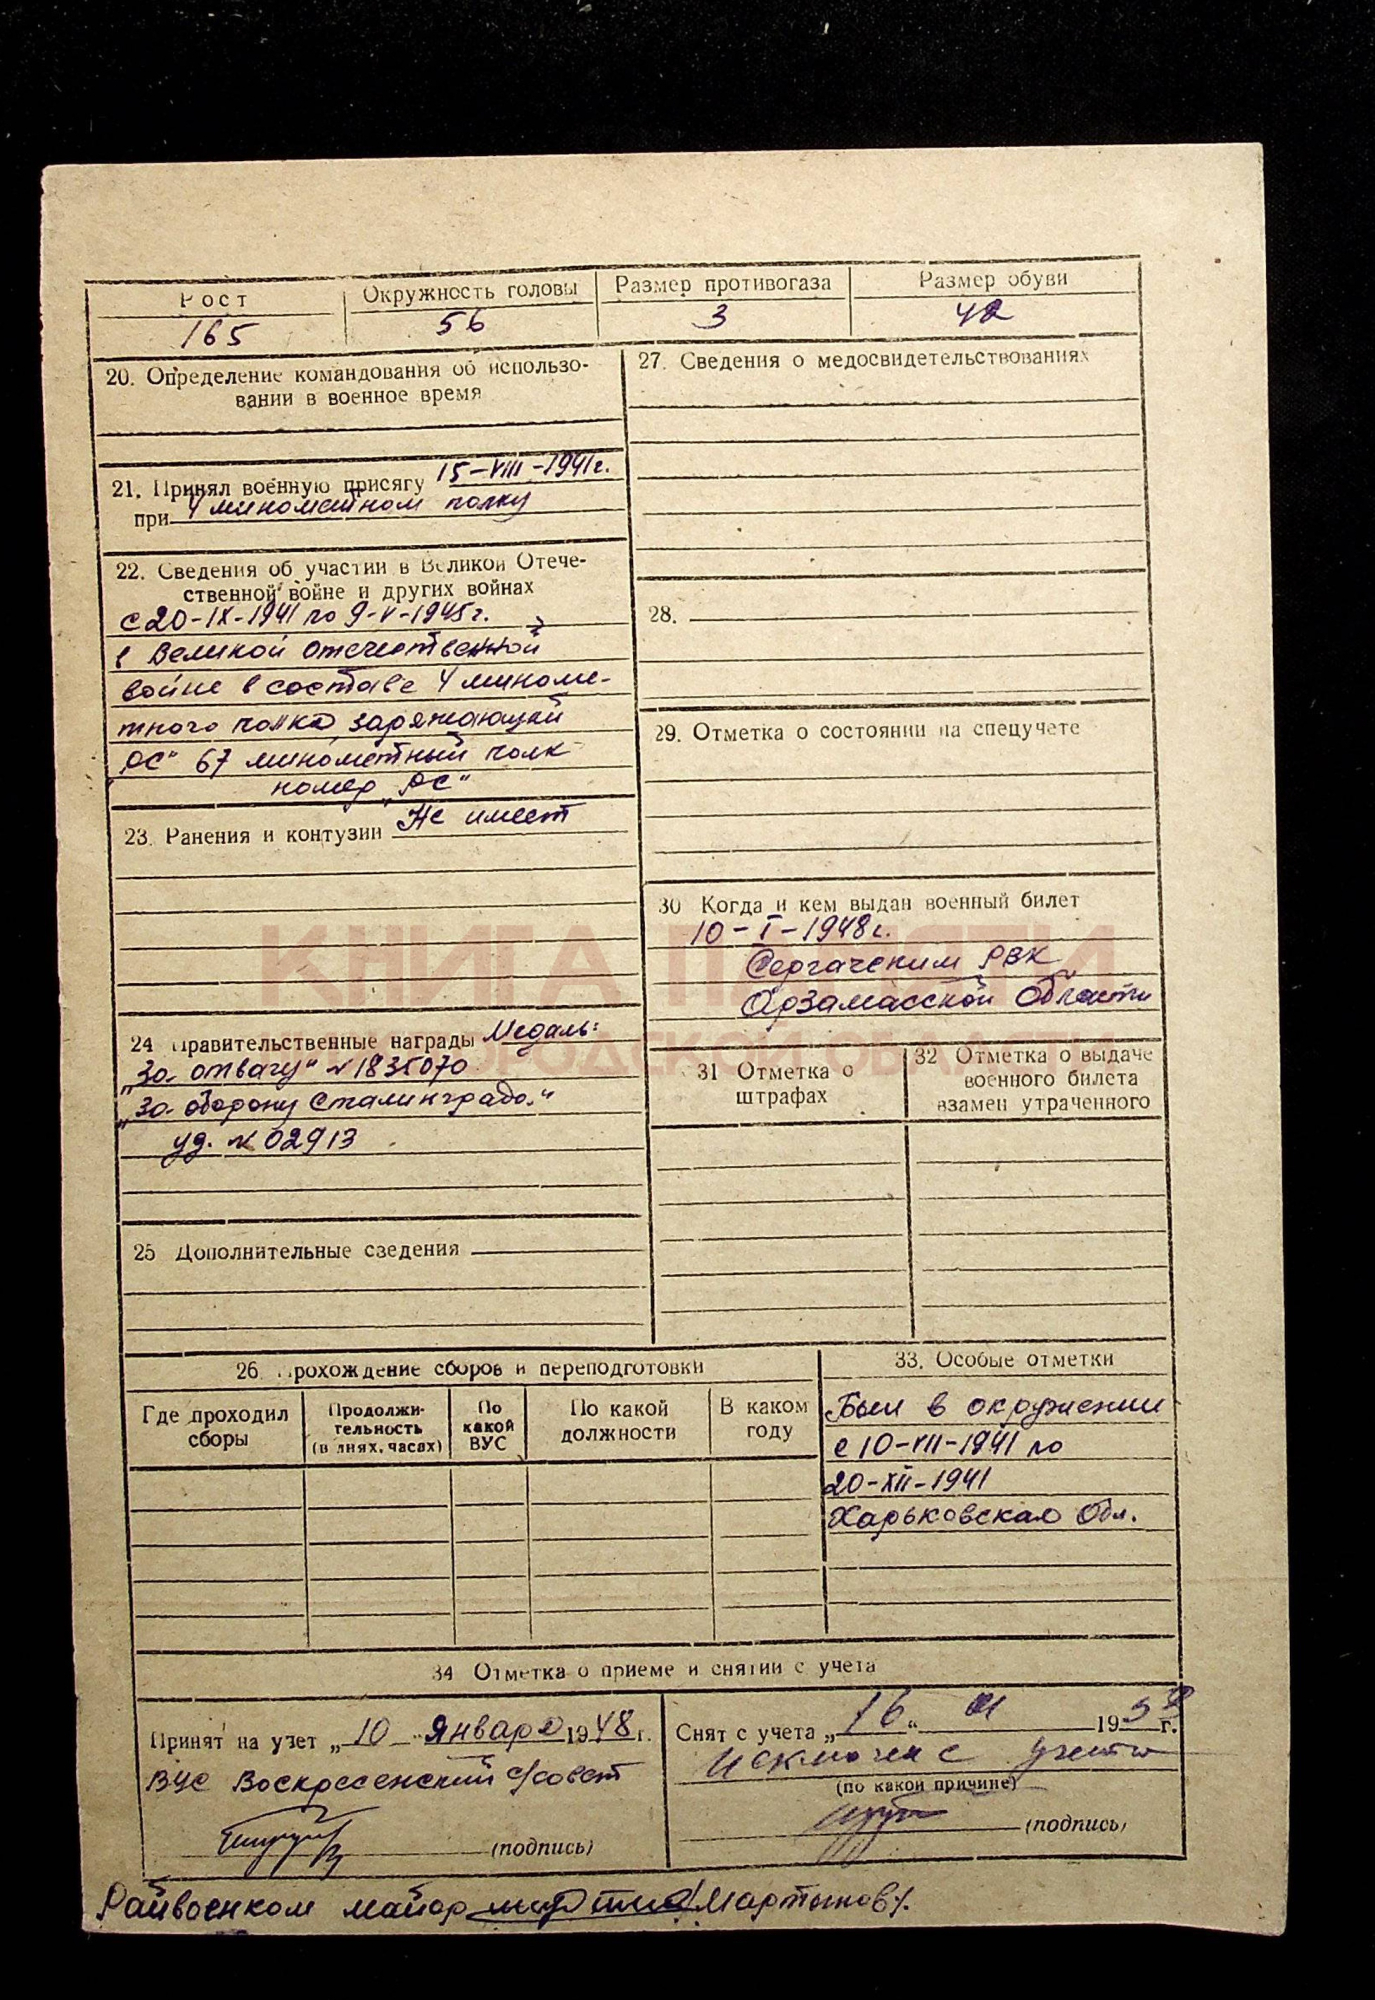 Рост Окружность головы Размер противогаза Размер обуви
165 56 3 42
20. Определение командования об использо-
вании в военное время
21. Принял военную присягу 15-VIII-1941г.
при 4 минометном полку
22. Сведения об участии в Великой Отече-
ственной войне и других войнах
с 20-IX-1941 по 9-V-1945г.
в Великой отечественной
войне в составе 4 миноме-
тного полка заряжающий
„РС" 67 минометный полк
номер „РС"
23. Ранения и контузии Не имеет
24 Правительственные награды Медаль:
„За отвагу" № 1835070
„За оборону Сталинграда."
уд. № 02913
25 Дополнительные сведения
27. Сведения о медосвидетельствованиях
28.
29. Отметка о состоянии на спецучете
30 Когда и кем выдан военный билет
10-I-1948г.
Сергачским РВК
Арзамасской Области
КНИГА ПАМЯТИ
НИЖЕГОРОДСКОЙ ОБЛАСТИ
31 Отметка о
штрафах
32 Отметка о выдаче
военного билета
взамен утраченного
26. Прохождение сборов и переподготовки
Где проходил
сборы
Продолжи-
тельность
(в днях, часах)
По
какой
ВУС
По какой
должности
В каком
году
33. Особые отметки
Был в окружении
с 10-VII-1941 по
20-XII-1941
Харьковская Обл.
34 Отметка о приеме и снятии с учета
Принят на учет „10" января 1948 г.
ВУС Воскресенский с/совет
(подпись)
Снят с учета „16" 19 г.
Исключен с учета
(по какой причине)
(подпись)
Райвоенком майор /Мартынов/.